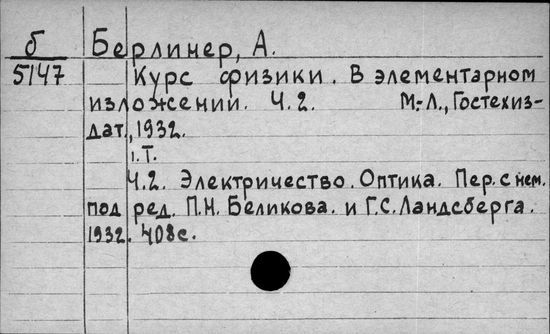 б Берлинер, А.
5147 Курс физики. В элементарном
изложении. Ч.2. М.-Л., Гостехиз-
дат, 1932.
1.Т.
Ч.2. Электричество. Оптика. Пер. с нем.
под ред. П.Н. Беликова. и Г.С. Ландсберга.
1932. 408с.